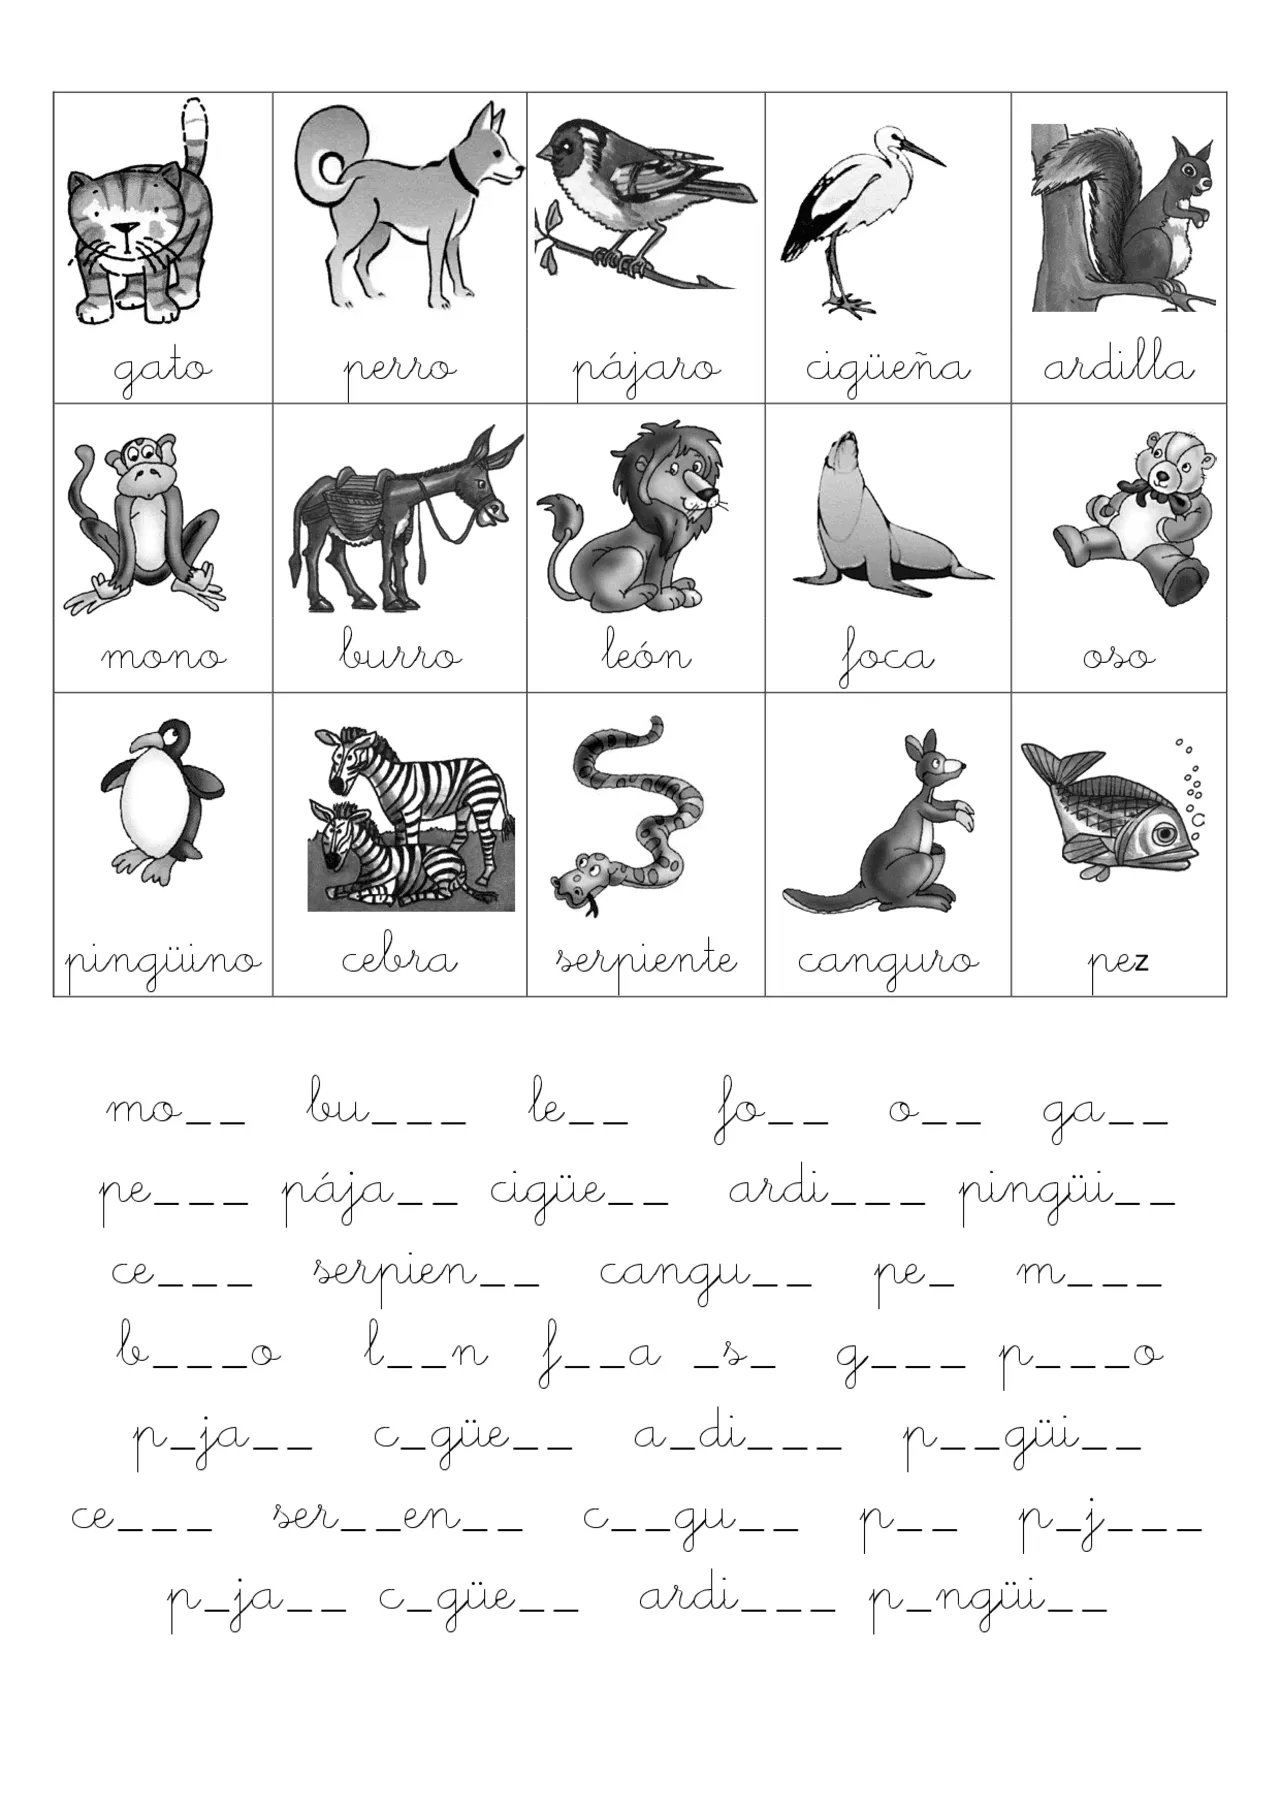 gato perro pájaro cigüeña ardilla
mono burro león foca oso
pingüino cebra serpiente canguro pez
mo__ bu___ le__ fo__ o__ ga__
pe___ pája__ cigüe__ ardi___ pingüi__
ce___ serpien__ cangu__ pe_ m___
b___o l__n f__a _s_ g___ p___o
p_ja__ c_güe__ a_di___ p__güi__
ce___ ser__en__ c__gu__ p__ p_j___
p_ja__ c_güe__ ardi___ p_ngüi__